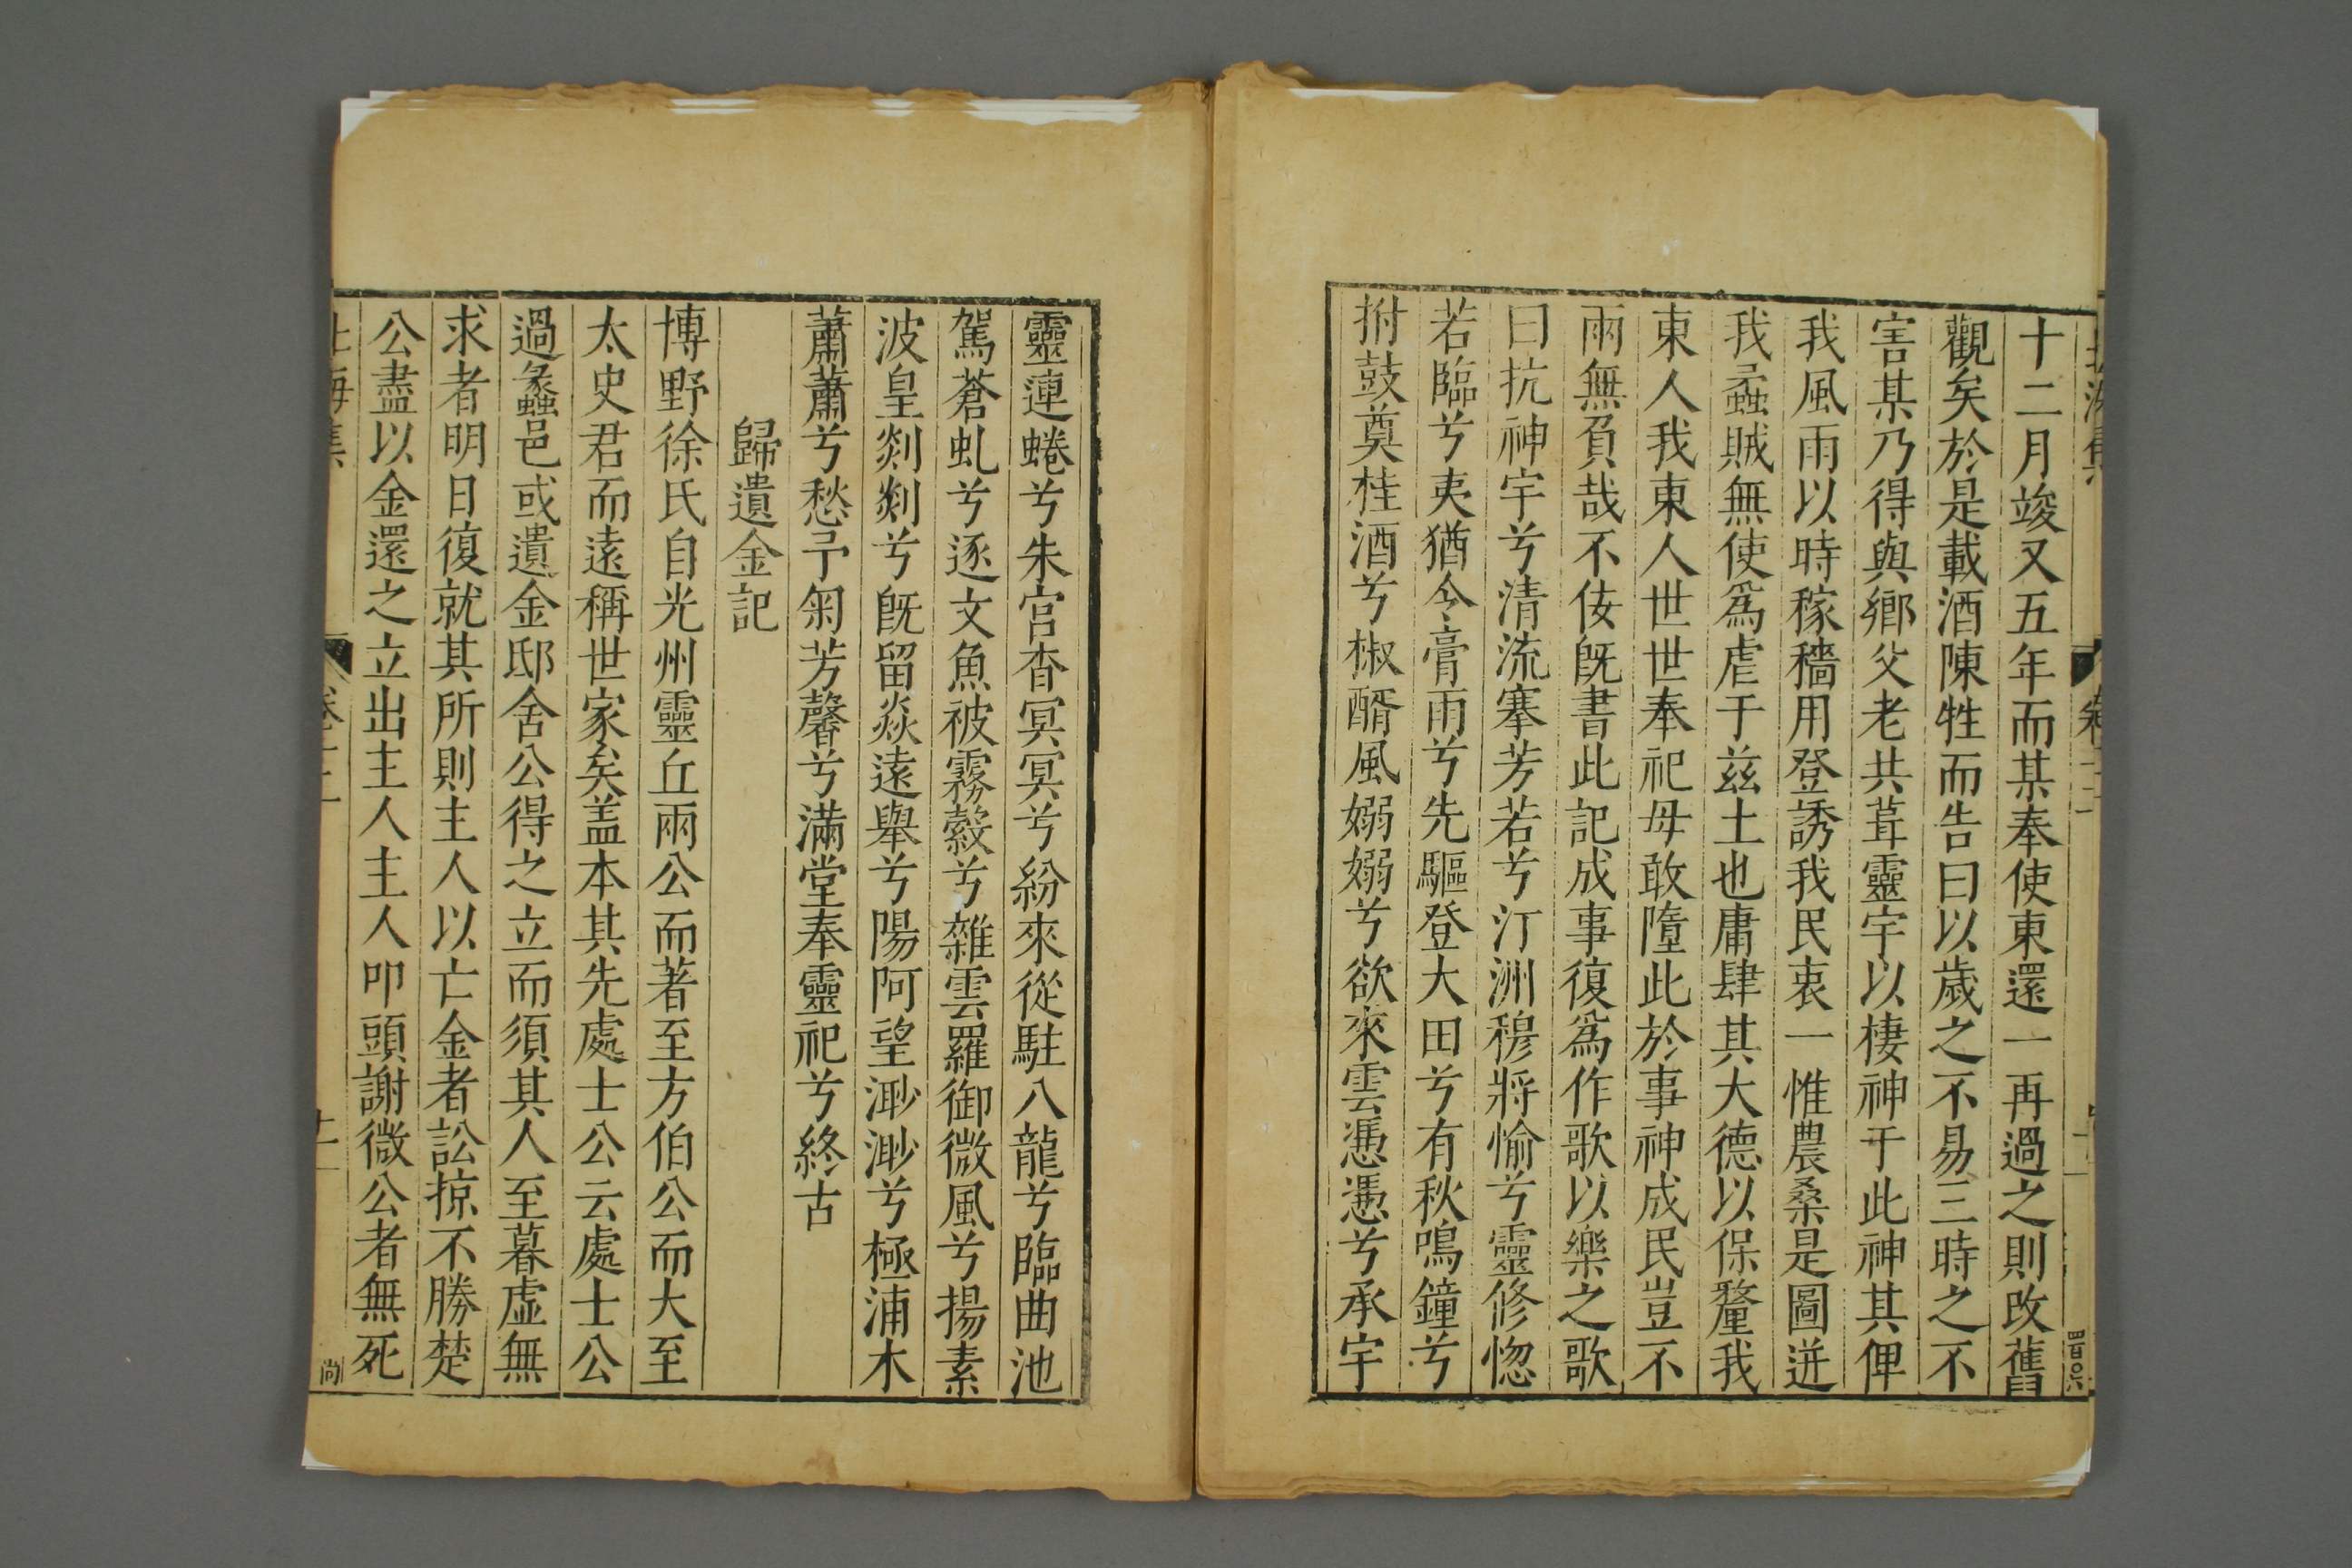 十二月竣又五年而某奉使東還一再過之則改舊
觀矣於是載酒陳牲而告曰以歲之不易三時之不
害某乃得與鄉父老共葺靈宇以棲神于此神其俾
我風雨以時稼穡用登誘我民衷一惟農桑是圖迸
我蟊賊無使爲虐于茲土也庸肆其大德以保釐我
東人我東人世世奉祀毋敢隳此於事神成民豈不
兩無負哉不佞旣書此記成事復爲作歌以樂之歌
曰抗神宇兮清流搴芳若兮汀洲穆將愉兮靈修惚
若臨兮夷猶令膏雨兮先驅登大田兮有秋鳴鐘兮
拊鼓奠桂酒兮椒醑風嫋嫋兮欲來雲慿慿兮承宇
靈蓮蜷兮朱宮杳冥冥兮紛來從駐八龍兮臨曲池
駕蒼虬兮逐文魚被霧縠兮雜雲羅御微風兮揚素
波皇剡剡兮旣留焱遠舉兮陽阿望渺渺兮極浦木
蕭蕭兮愁予匊芳馨兮滿堂奉靈祀兮終古
歸遺金記
博野徐氏自光州靈丘兩公而著至方伯公而大至
太史君而遠稱世家矣盖本其先處士公云處士公
過蠡邑或遺金邸舍公得之立而須其人至暮虛無
求者明日復就其所則主人以亡金者訟掠不勝楚
公盡以金還之立出主人主人叩頭謝微公者無死
尚